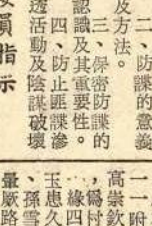 二、防諜的意義
及方法。
三、保密防諜的
認識及其重要性。
四、防止匪諜滲
透活動及陰謀破壞
委員指示
一一附
高崇欽
，爲村
緣四
玉惠久
、孫雪
暈厥路